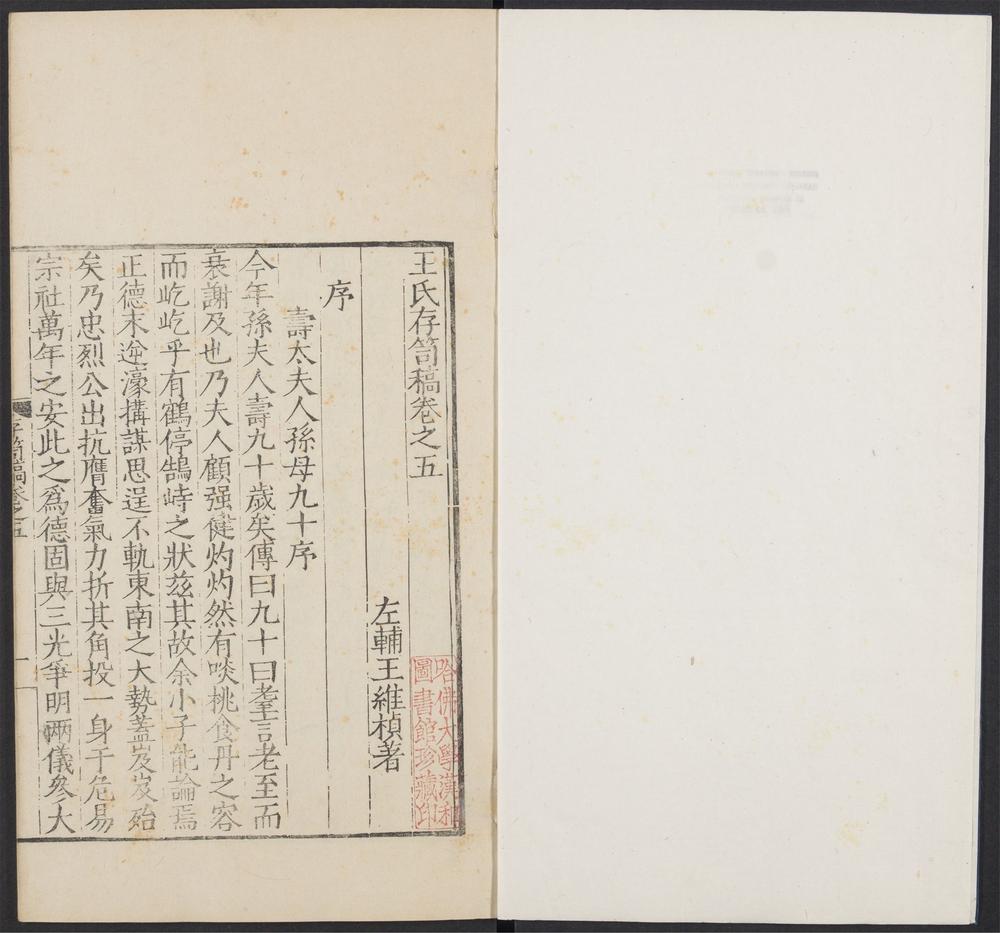 王氏存笥稿卷之五
左輔王維楨著
序
壽太夫人孫母九十序
今年孫夫人壽九十歲矣傳曰九十曰耄言老至而
衰謝及也乃夫人顧强健灼灼然有啖桃食丹之容
而屹屹乎有鶴停鵠峙之狀兹其故余小子能論焉
正德末逆濠搆謀思逞不軌東南之大勢蓋岌岌殆
矣乃忠烈公出抗膺奮氣力折其角投一身于危易
宗社萬年之安此之爲德固與三光爭明兩儀參大
存笥稿卷之五
一
哈佛大學漢和
圖書館珍藏印